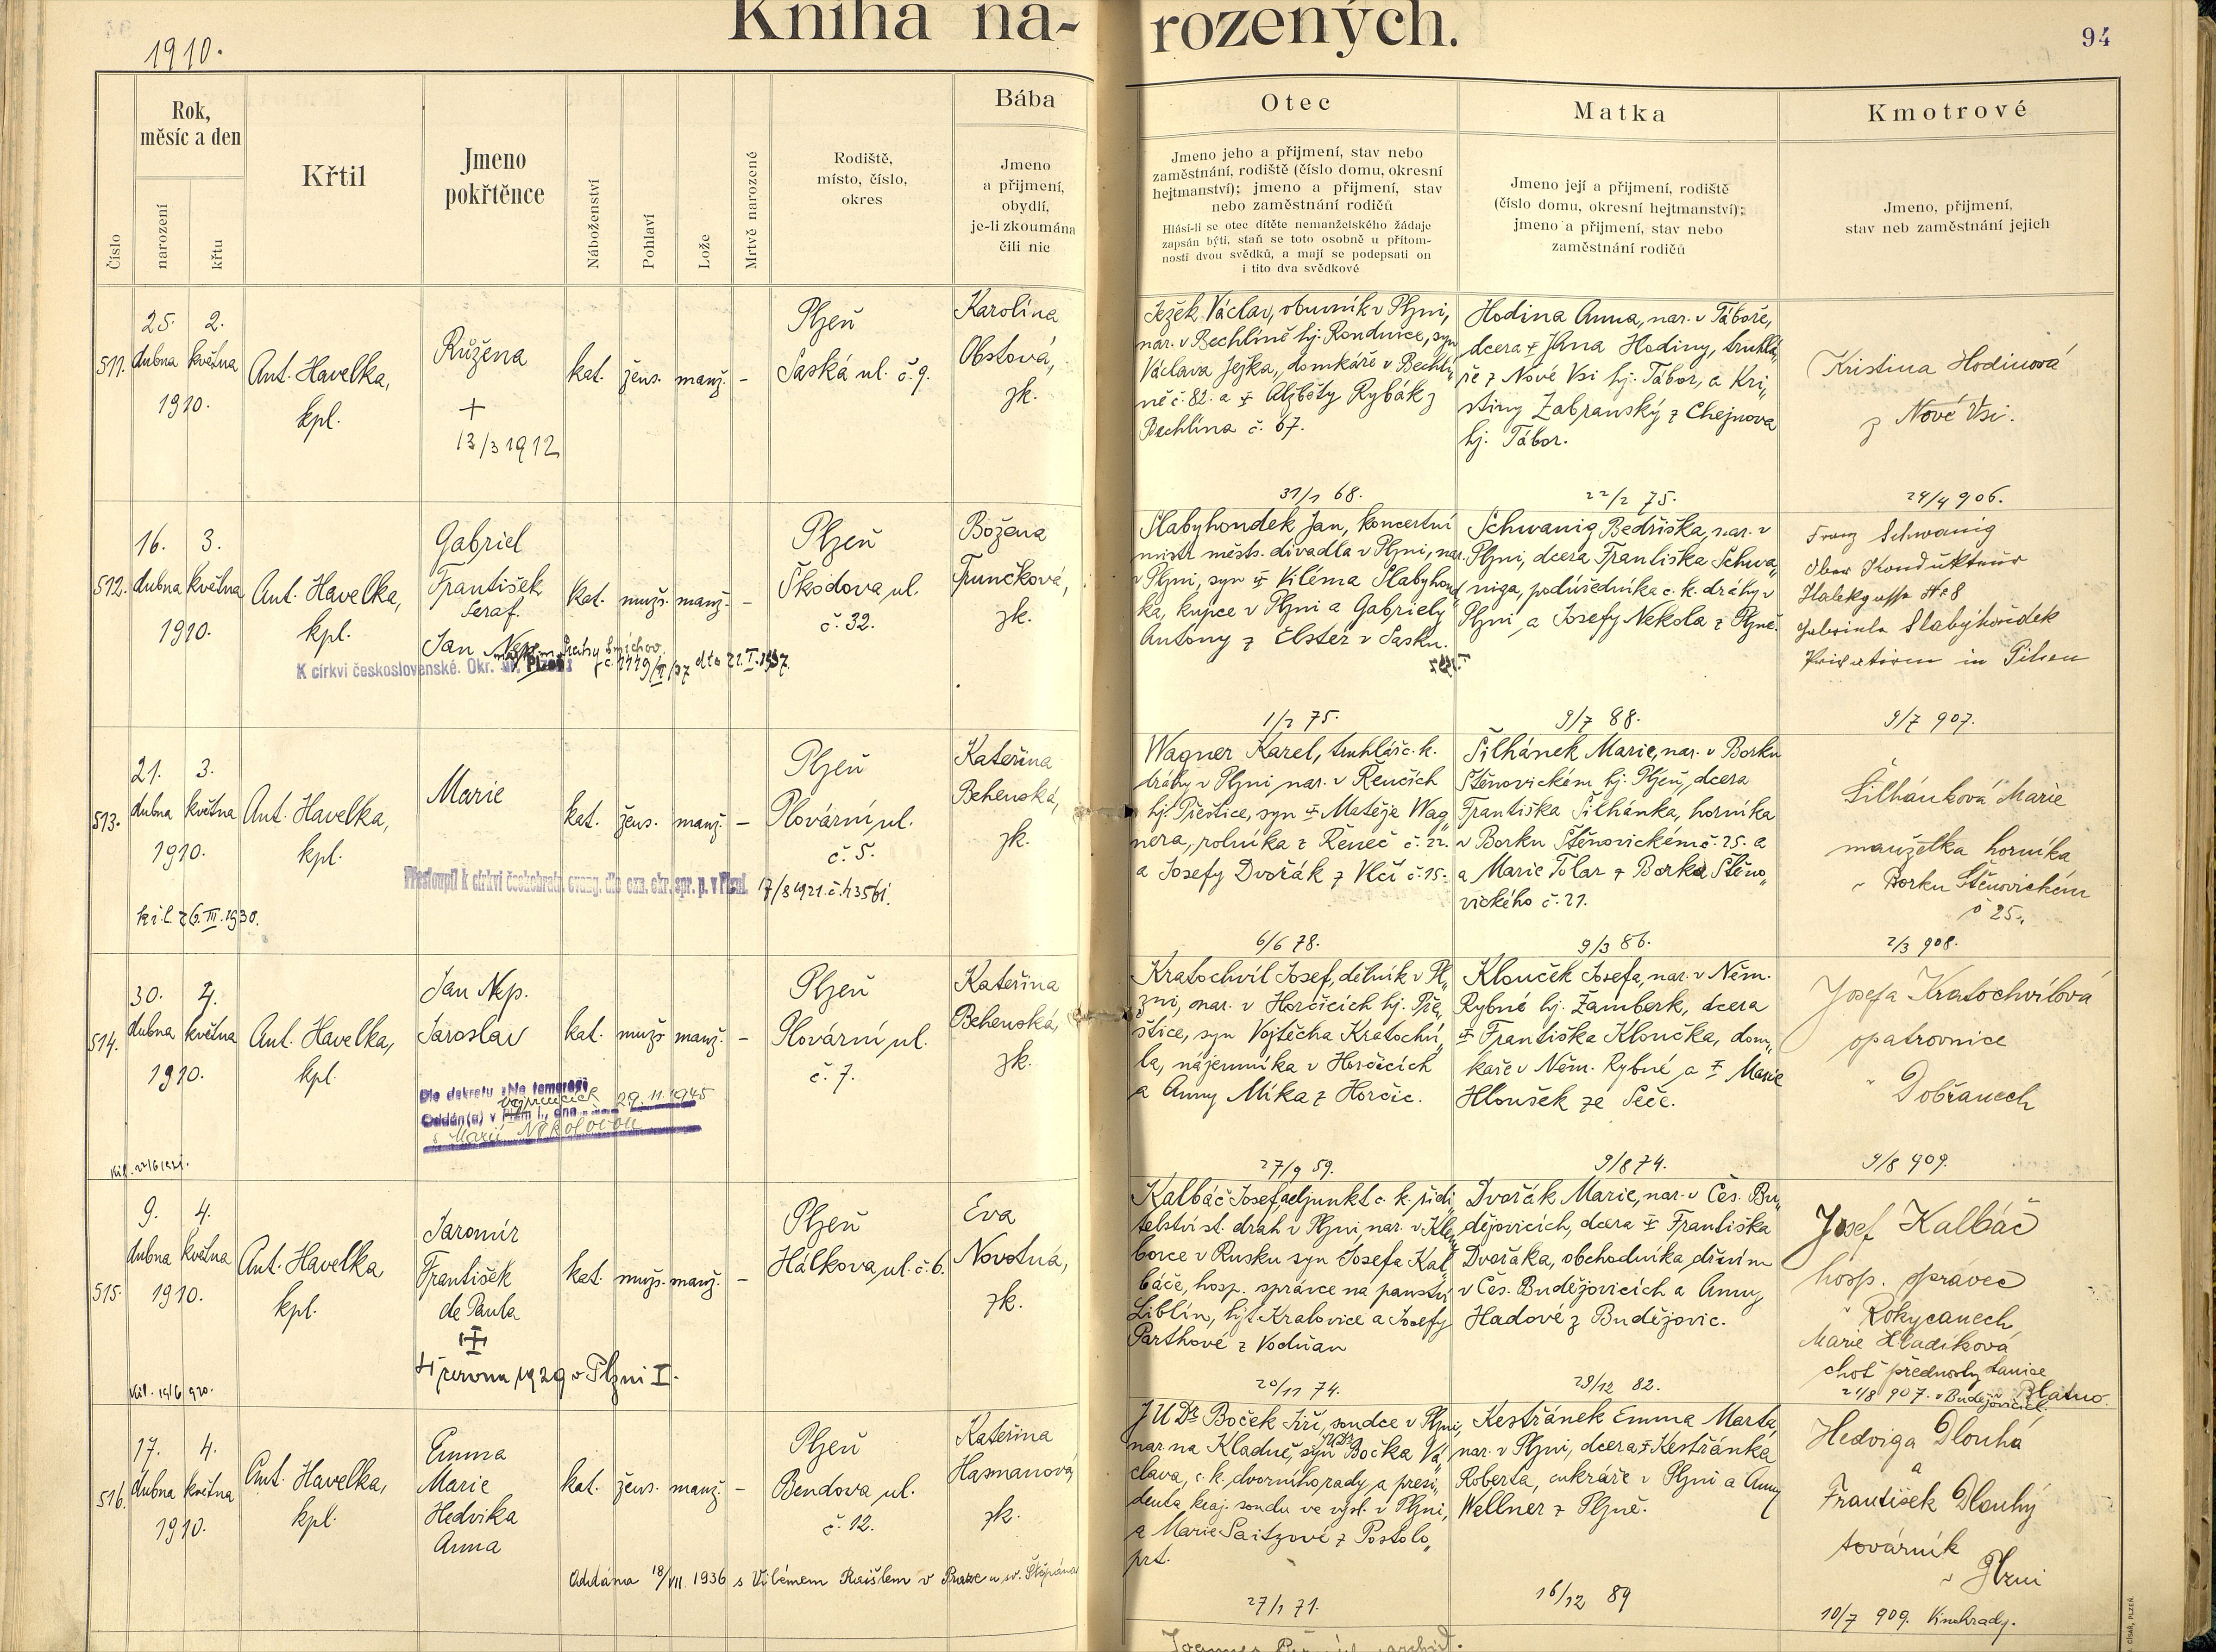 Kniha na-
rozených.
94
1910.
Číslo
Rok,
měsíc a den
narození
křtu
Křtil
Jmeno
pokřtěnce
Náboženství
Pohlaví
Lože
Mrtvě narozené
Rodiště,
místo, číslo,
okres
Bába
Jmeno
a přijmení,
obydlí,
je-li zkoumána
čili nic
Otec
Jmeno jeho a přijmení, stav nebo
zaměstnání, rodiště (číslo domu, okresní
hejtmanství); jmeno a přijmení, stav
nebo zaměstnání rodičů
Hlásí-li se otec dítěte nemanželského žádaje
zapsán býti, staň se toto osobně u přítom-
nosti dvou svědků, a mají se podepsati on
i tito dva svědkové
Matka
Jmeno její a přijmení, rodiště
(číslo domu, okresní hejtmanství);
jmeno a přijmení, stav nebo
zaměstnání rodičů
Kmotrové
Jmeno, přijmení,
stav neb zaměstnání jejich
511.
25. 2.
dubna května
1910.
Ant. Havelka,
kpl.
Růžena
+
13/3 1912
kat. žens. manž. -
Plzeň
Saská ul. č. 9.
Karolina
Obstová,
zk.
Ježek Václav, obuvník v Plzni,
nar. v Bechlíně hj. Roudnice, syn
Václava Ježka, domkáře v Bechlí„
ně č. 82. a ‡ Alžběty Rybák z
Bechlína č. 67.
31/1 68.
Hodina Anna, nar. v Táboře,
dcera ‡ Jana Hodiny, truhlá„
ře z Nové Vsi hj. Tábor, a Kri„
stiny Zabranský z Chejnova
hj. Tábor.
22/2 75.
Kristina Hodinová
z Nové Vsi.
24/4 906.
512.
16. 3.
dubna května
1910.
Ant. Havelka,
kpl.
Gabriel
František
Seraf.
Jan Nep.
kat. mužs. manž. -
Plzeň
Škodova ul.
č. 32.
Božena
Trunčková,
zk.
K církvi československé. Okr.
Prahy Smíchov
č. 1119/II/37 dto 21.I.1937.
Slabyhoudek Jan, koncertní
mistr městs. divadla v Plzni, nar.
v Plzni, syn ‡ Viléma Slabyhoud
ka, kupce v Plzni a Gabriely
Antony z Elster v Sasku.
1/2 75.
Schwanig Bedřiška, nar. v
Plzni, dcera Františka Schwa„
niga, podúředníka c. k. dráhy v
Plzni a Josefy Nekola z Plzně.
9/7 88.
Franz Schwanig
Ober Kondukteur
Halekgasse № 8
Gabriela Slabyhoudek
Privatiere in Pilsen
9/7 907.
513.
21. 3.
dubna května
1910.
Ant. Havelka,
kpl.
Marie
kat. žens. manž. -
Plzeň
Plovární ul.
č. 5.
Kateřina
Behenská,
zk.
Přestoupil k církvi českobratr. evang. dle ozn. okr. spr. p. v Plzni
17/8 1921. č. h 3561.
bil. 26.III.1930.
Wagner Karel, truhlář c. k.
dráhy v Plzni nar. v Řenčích
hj. Přeštice, syn ‡ Matěje Wag„
nera, rolníka z Řeneč č. 22.
a Josefy Dvořák z Vlčí č. 15.
6/6 78.
Šilhánek Marie, nar. v Borku
Štěnovickém hj. Plzeň, dcera
Františka Šilhánka, horníka
v Borku Štěnovickém č. 25. a
a Marie Tolar z Borka Štěno„
vického č. 21.
9/3 86.
Šilhánková Marie
manželka horníka
v Borku Štěnovickém
č 25.
2/3 908.
514.
30. 4.
dubna května
1910.
Ant. Havelka,
kpl.
Jan Nep.
Jaroslav
kat. mužs manž. -
Plzeň
Plovární ul.
č. 7.
Kateřina
Behenská,
zk.
Dle dekretu
Oddán(a) v
29. 11. 1945
s Marií
Kratochvíl Josef, dělník v Pl„
zni, nar. v Horčicích hj. Pře„
štice, syn Vojtěcha Kratochví„
la, nájemníka v Horčicích
a Anny Míka z Horčic.
27/9 59.
Klouček Josefa, nar. v Něm.
Rybné hj. Žamberk, dcera
‡ Františka Kloučka, dom„
káře v Něm. Rybné a ‡ Marie
Hloušek ze Seče.
9/8 74.
Josefa Kratochvílová
opatrovnice
v Dobřanech
9/8 909.
515.
9. 4.
dubna května
1910.
Ant. Havelka
kpl.
Jaromír
František
de Paula
‡
4 června 1929 v Plzni I.
kat. mužs. manž. -
Plzeň
Hálkova ul. č. 6.
Eva
Novotná,
zk.
Kalbáč Josef, adjunkt c. k. ředi„
telství st. drah v Plzni, nar. v Klem
borce v Rusku syn Josefa Kal„
báče, hosp. správce na panství
Liblín, hjt. Kralovice a Josefy
Parthové z Vodňan
20/11 74.
Dvořák Marie, nar. v Čes. Bu„
dějovicích, dcera ‡ Františka
Dvořáka, obchodníka dřívím
v Čes. Budějovicích a Anny
Hadové z Budějovic.
29/12 82.
Josef Kalbáč
hosp. správce
v Rokycanech
Marie Hladíková
choť přednosty stanice
Blatno
21/8 907. v Budějovicích
516.
17. 4.
dubna května
1910.
Ant. Havelka,
kpl.
Emma
Marie
Hedvika
Anna
kat. žens. manž. -
Plzeň
Bendova ul.
č. 12.
Kateřina
Hasmanová
zk.
Oddána 18/VII. 1936 s Vilémem Raišlem v Praze u sv. Štěpána
JUDr Boček Jiří, soudce v Plzni,
nar. na Kladně, syn JUDr Bočka Vá„
clava, c. k. dvorního rady a presi„
denta kraj. soudu ve výsl. v Plzni,
a Marie Saitzové z Postolo„
prt.
27/1 71.
Kestřánek Emma Marta,
nar. v Plzni, dcera ‡ Kestřánka
Roberta, cukráře v Plzni a Anny
Wellner z Plzně.
16/12 89
Hedviga Dlouhá
a
František Dlouhý
továrník
v Plzni
10/7 909. Vinohrady.